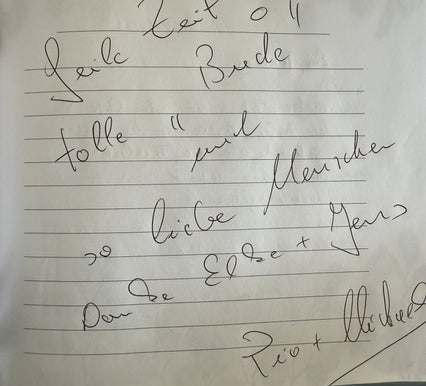 Geile Zeit o "
Bude
tolle " und
so liebe Menschen
Danke Elke + Jens
Pio + Michael